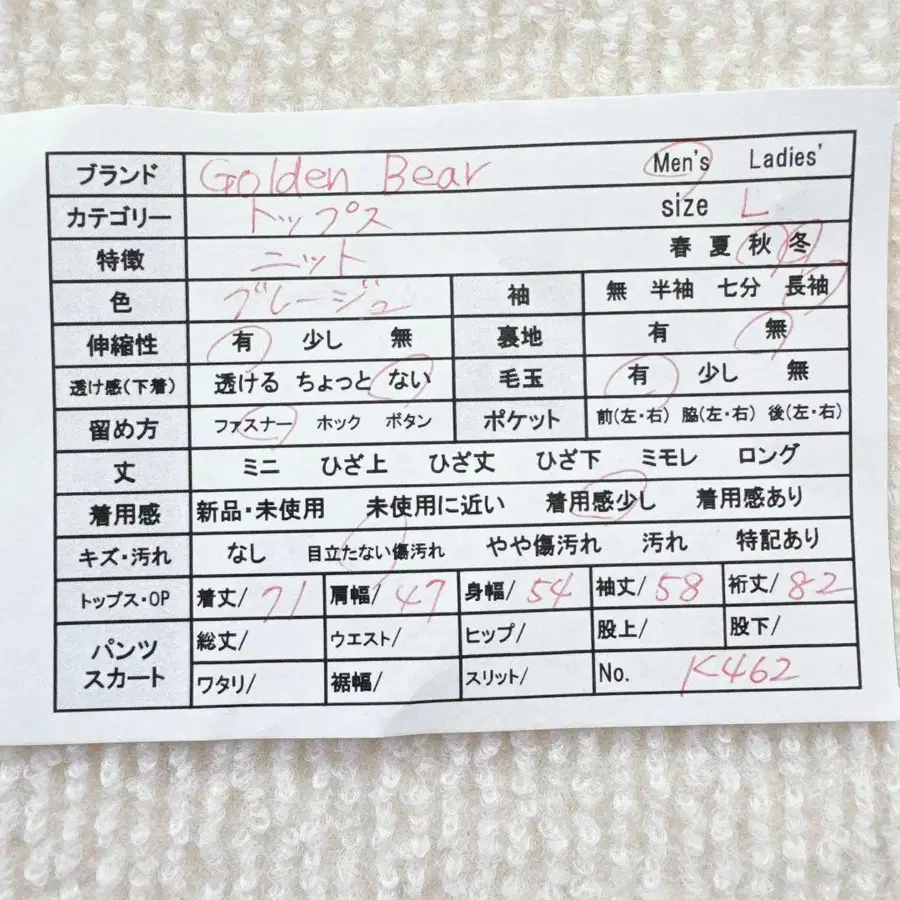 ブランド Golden Bear Men's Ladies'
カテゴリー トップス size L
特徴 ニット 春 夏 秋 冬
色 グレージュ 袖 無 半袖 七分 長袖
伸縮性 有 少し 無 裏地 有 無
透け感(下着) 透ける ちょっと ない 毛玉 有 少し 無
留め方 ファスナー ホック ボタン ポケット 前(左・右) 脇(左・右) 後(左・右)
丈 ミニ ひざ上 ひざ丈 ひざ下 ミモレ ロング
着用感 新品・未使用 未使用に近い 着用感少し 着用感あり
キズ・汚れ なし 目立たない傷汚れ やや傷汚れ 汚れ 特記あり
トップス・OP 着丈/ 71 肩幅/ 47 身幅/ 54 袖丈/ 58 裄丈/ 82
パンツ スカート 総丈/ ウエスト/ ヒップ/ 股上/ 股下/
ワタリ/ 裾幅/ スリット/ No. K462